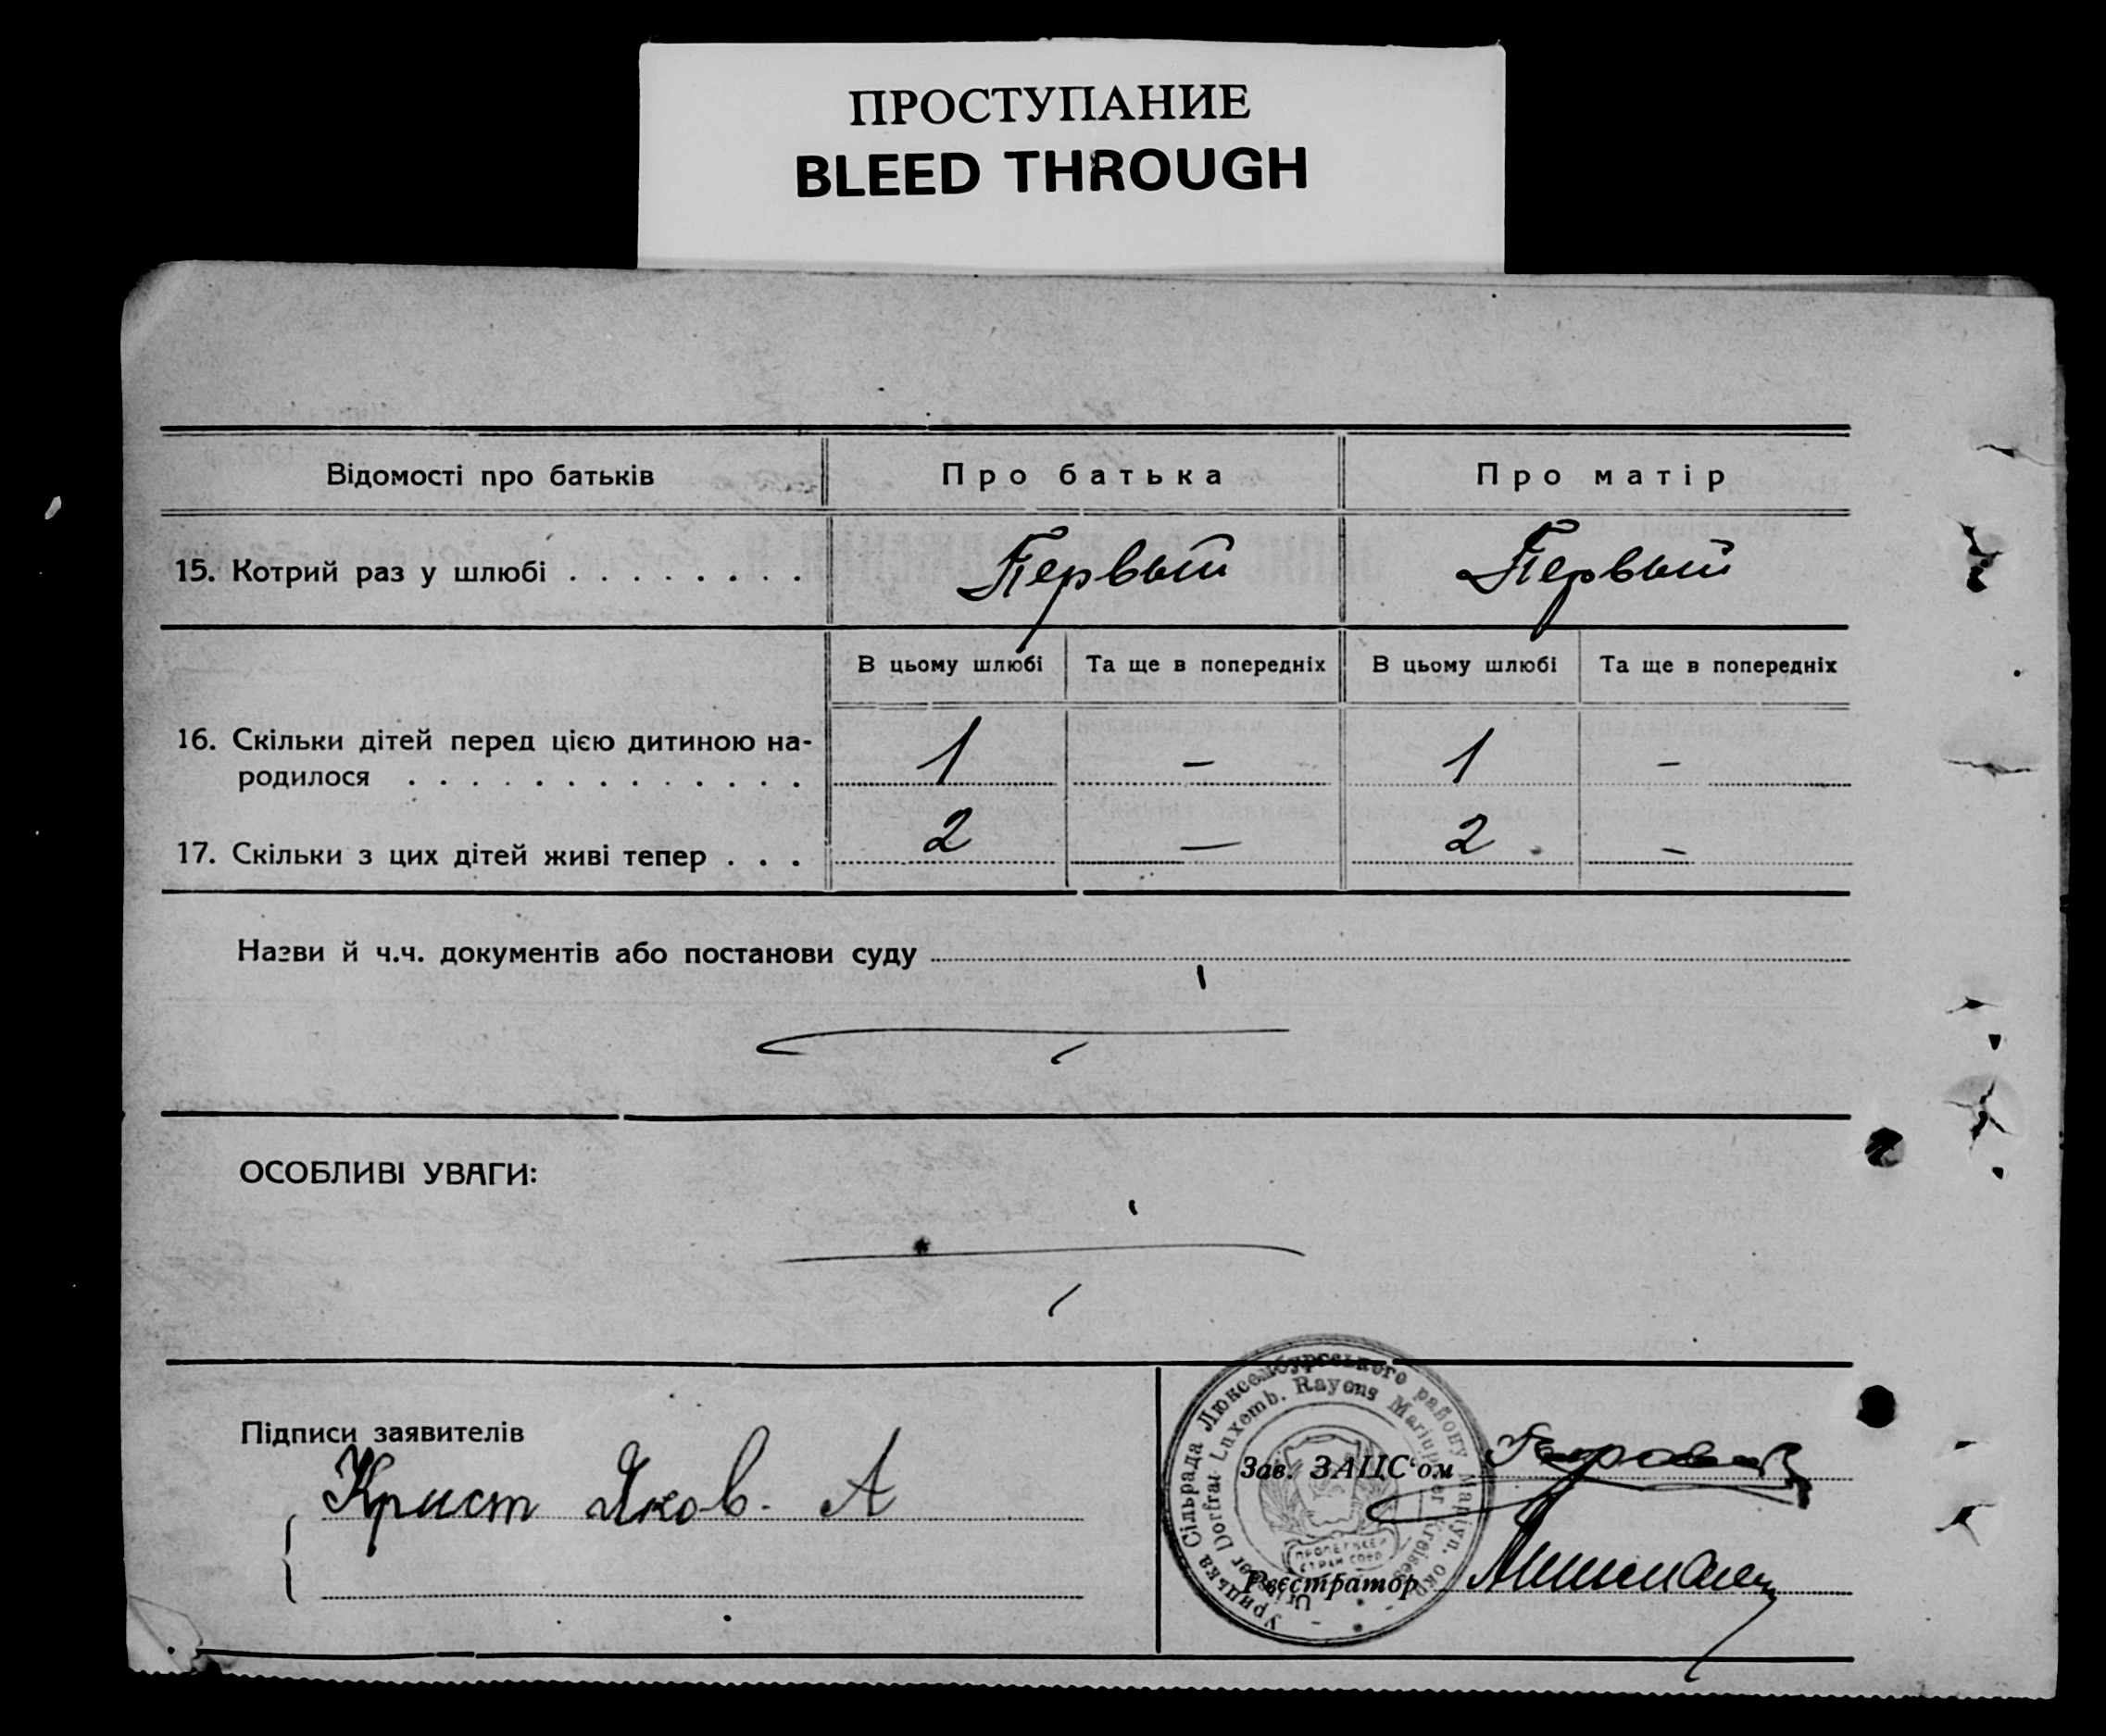 ПРОСТУПАНИЕ
BLEED THROUGH
Відомості про батьків
Про батька
Про матір
15. Котрий раз у шлюбі . . . . . . . .
Первый
Первый
В цьому шлюбі
Та ще в попередніх
В цьому шлюбі
Та ще в попередніх
16. Скільки дітей перед цією дитиною на-
родилося . . . . . . . . . . . . .
1
–
1
–
17. Скільки з цих дітей живі тепер . . .
2
—
2
–
Назви й ч.ч. документів або постанови суду
ОСОБЛИВІ УВАГИ:
Підписи заявителів
Крист Яков. А
Зав. ЗАЦС'ом
Реєстратор
Урицька Сільрада Люксембургського району Маріуп. окр.
Dorfrat Luxemb. Rayons Mariupoler Kreises